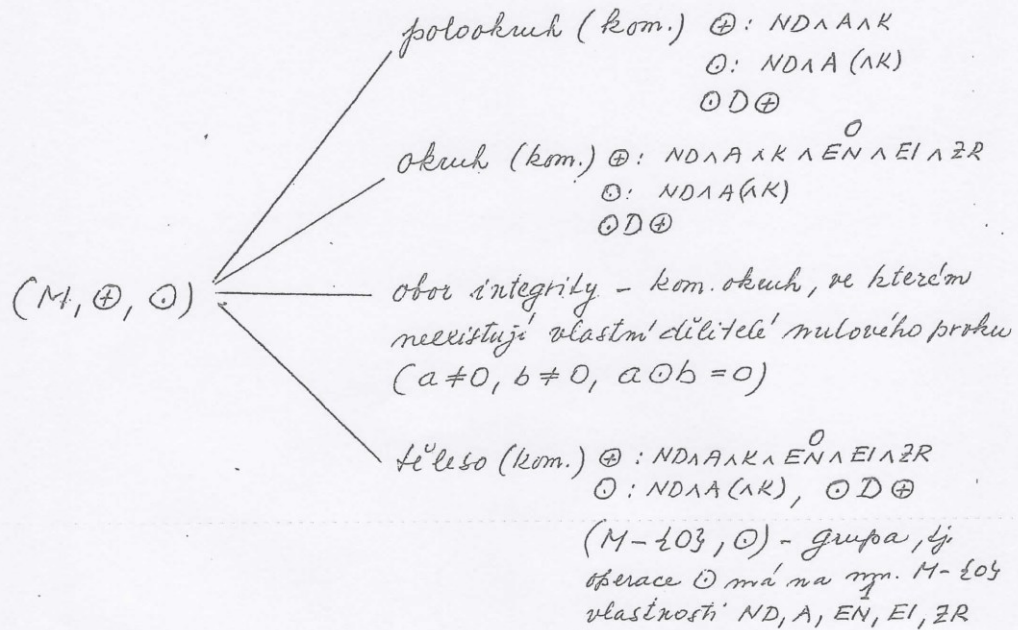 polookruh (kom.) ⊕: ND∧A∧K
⊙: ND∧A (∧K)
⊙D⊕
okruh (kom.) ⊕: ND∧A∧K∧EN∧EI∧ZR
0
⊙: ND∧A(∧K)
⊙D⊕
(M, ⊕, ⊙)
obor integrity – kom. okruh, ve kterém
neexistují vlastní dělitelé nulového prvku
(a≠0, b≠0, a⊙b=0)
těleso (kom.) ⊕: ND∧A∧K∧EN∧EI∧ZR
0
⊙: ND∧A(∧K), ⊙D⊕
(M-{0}, ⊙) - grupa, tj.
operace ⊙ má na mn. M-{0}
vlastnosti ND, A, EN, EI, ZR
1